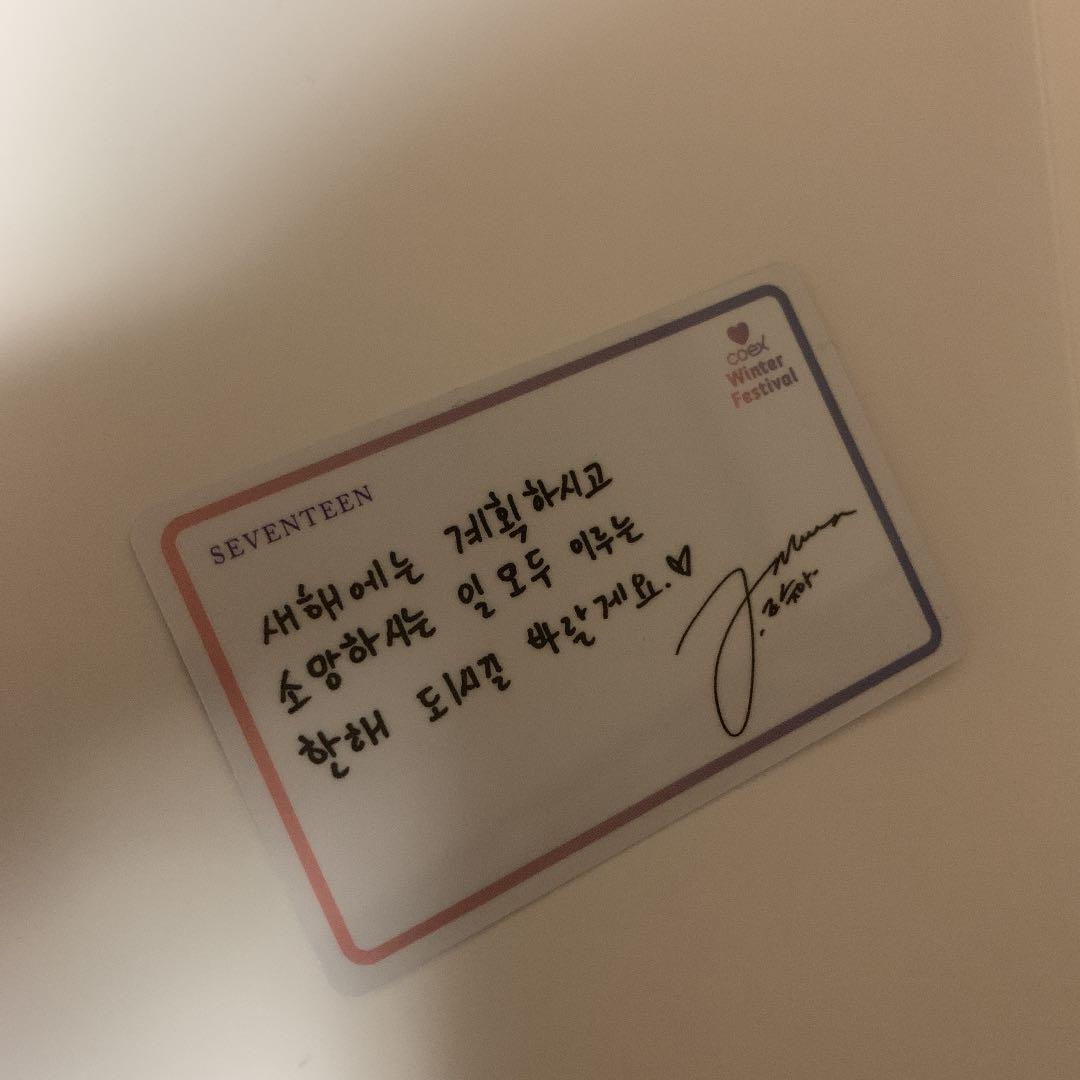 coex
Winter
Festival
SEVENTEEN
새해에는 계획하시고
소망하시는 일 모두 이루는
한해 되시길 바랄게요.♡
Joshua
조슈아